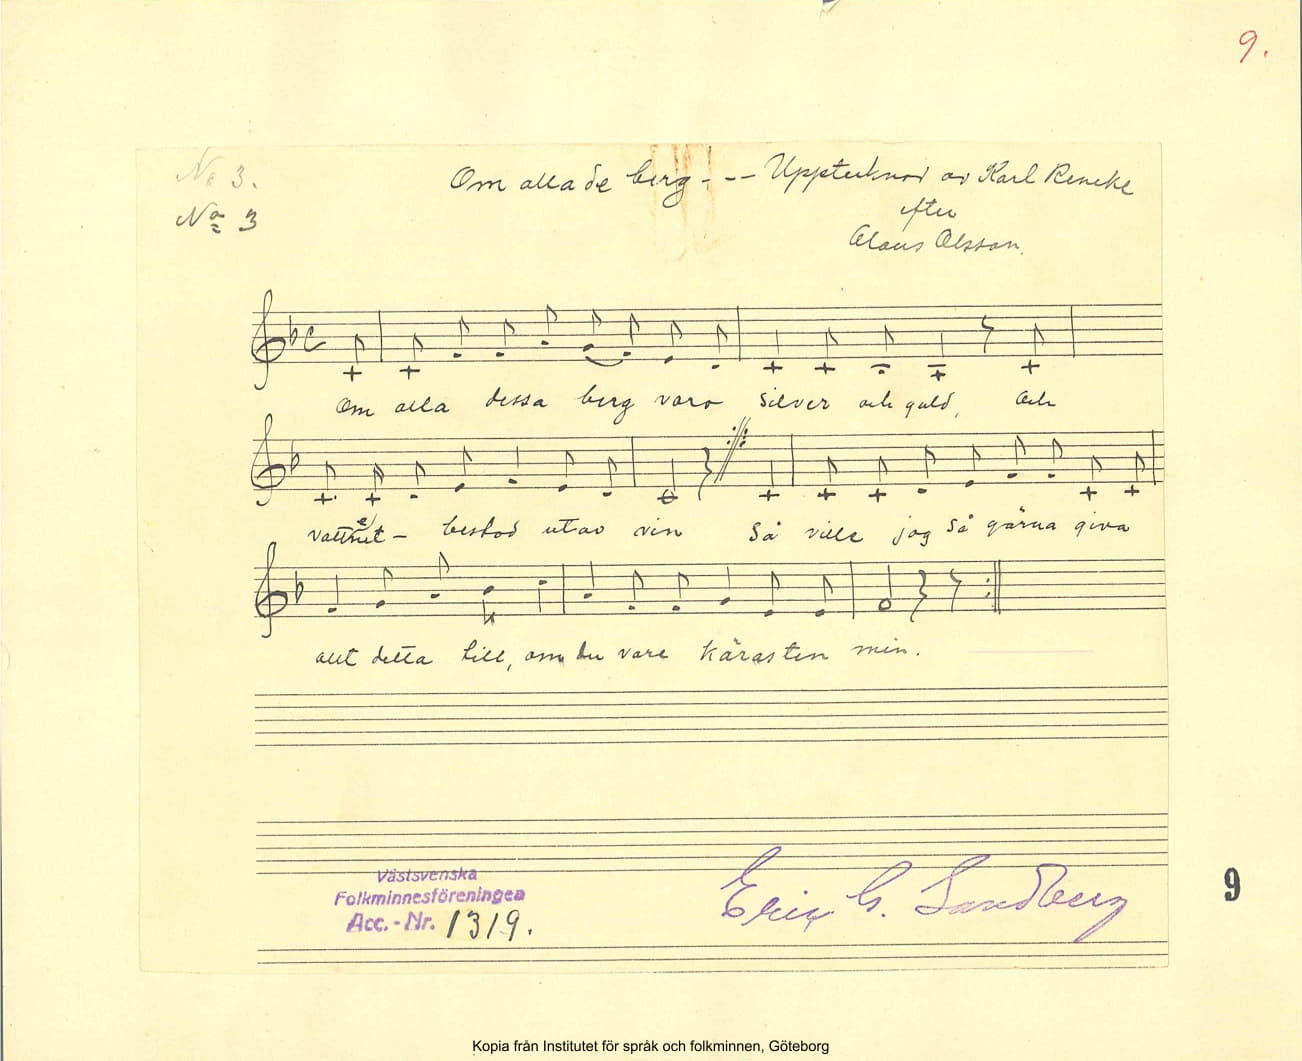 9.
No 3.
No 3
Om alla de berg - - - Upptecknad av Karl Reneke
efter
Claus Olsson.
Om alla dessa berg voro silver och guld, Och
vattnet - bestod utav vin Så ville jag så gärna giva
allt detta till, om du vore kärasten min.
Västsvenska
Folkminnesföreningen
Acc.-Nr. 1319.
Eric G. Sandberg
9
Kopia från Institutet för språk och folkminnen, Göteborg